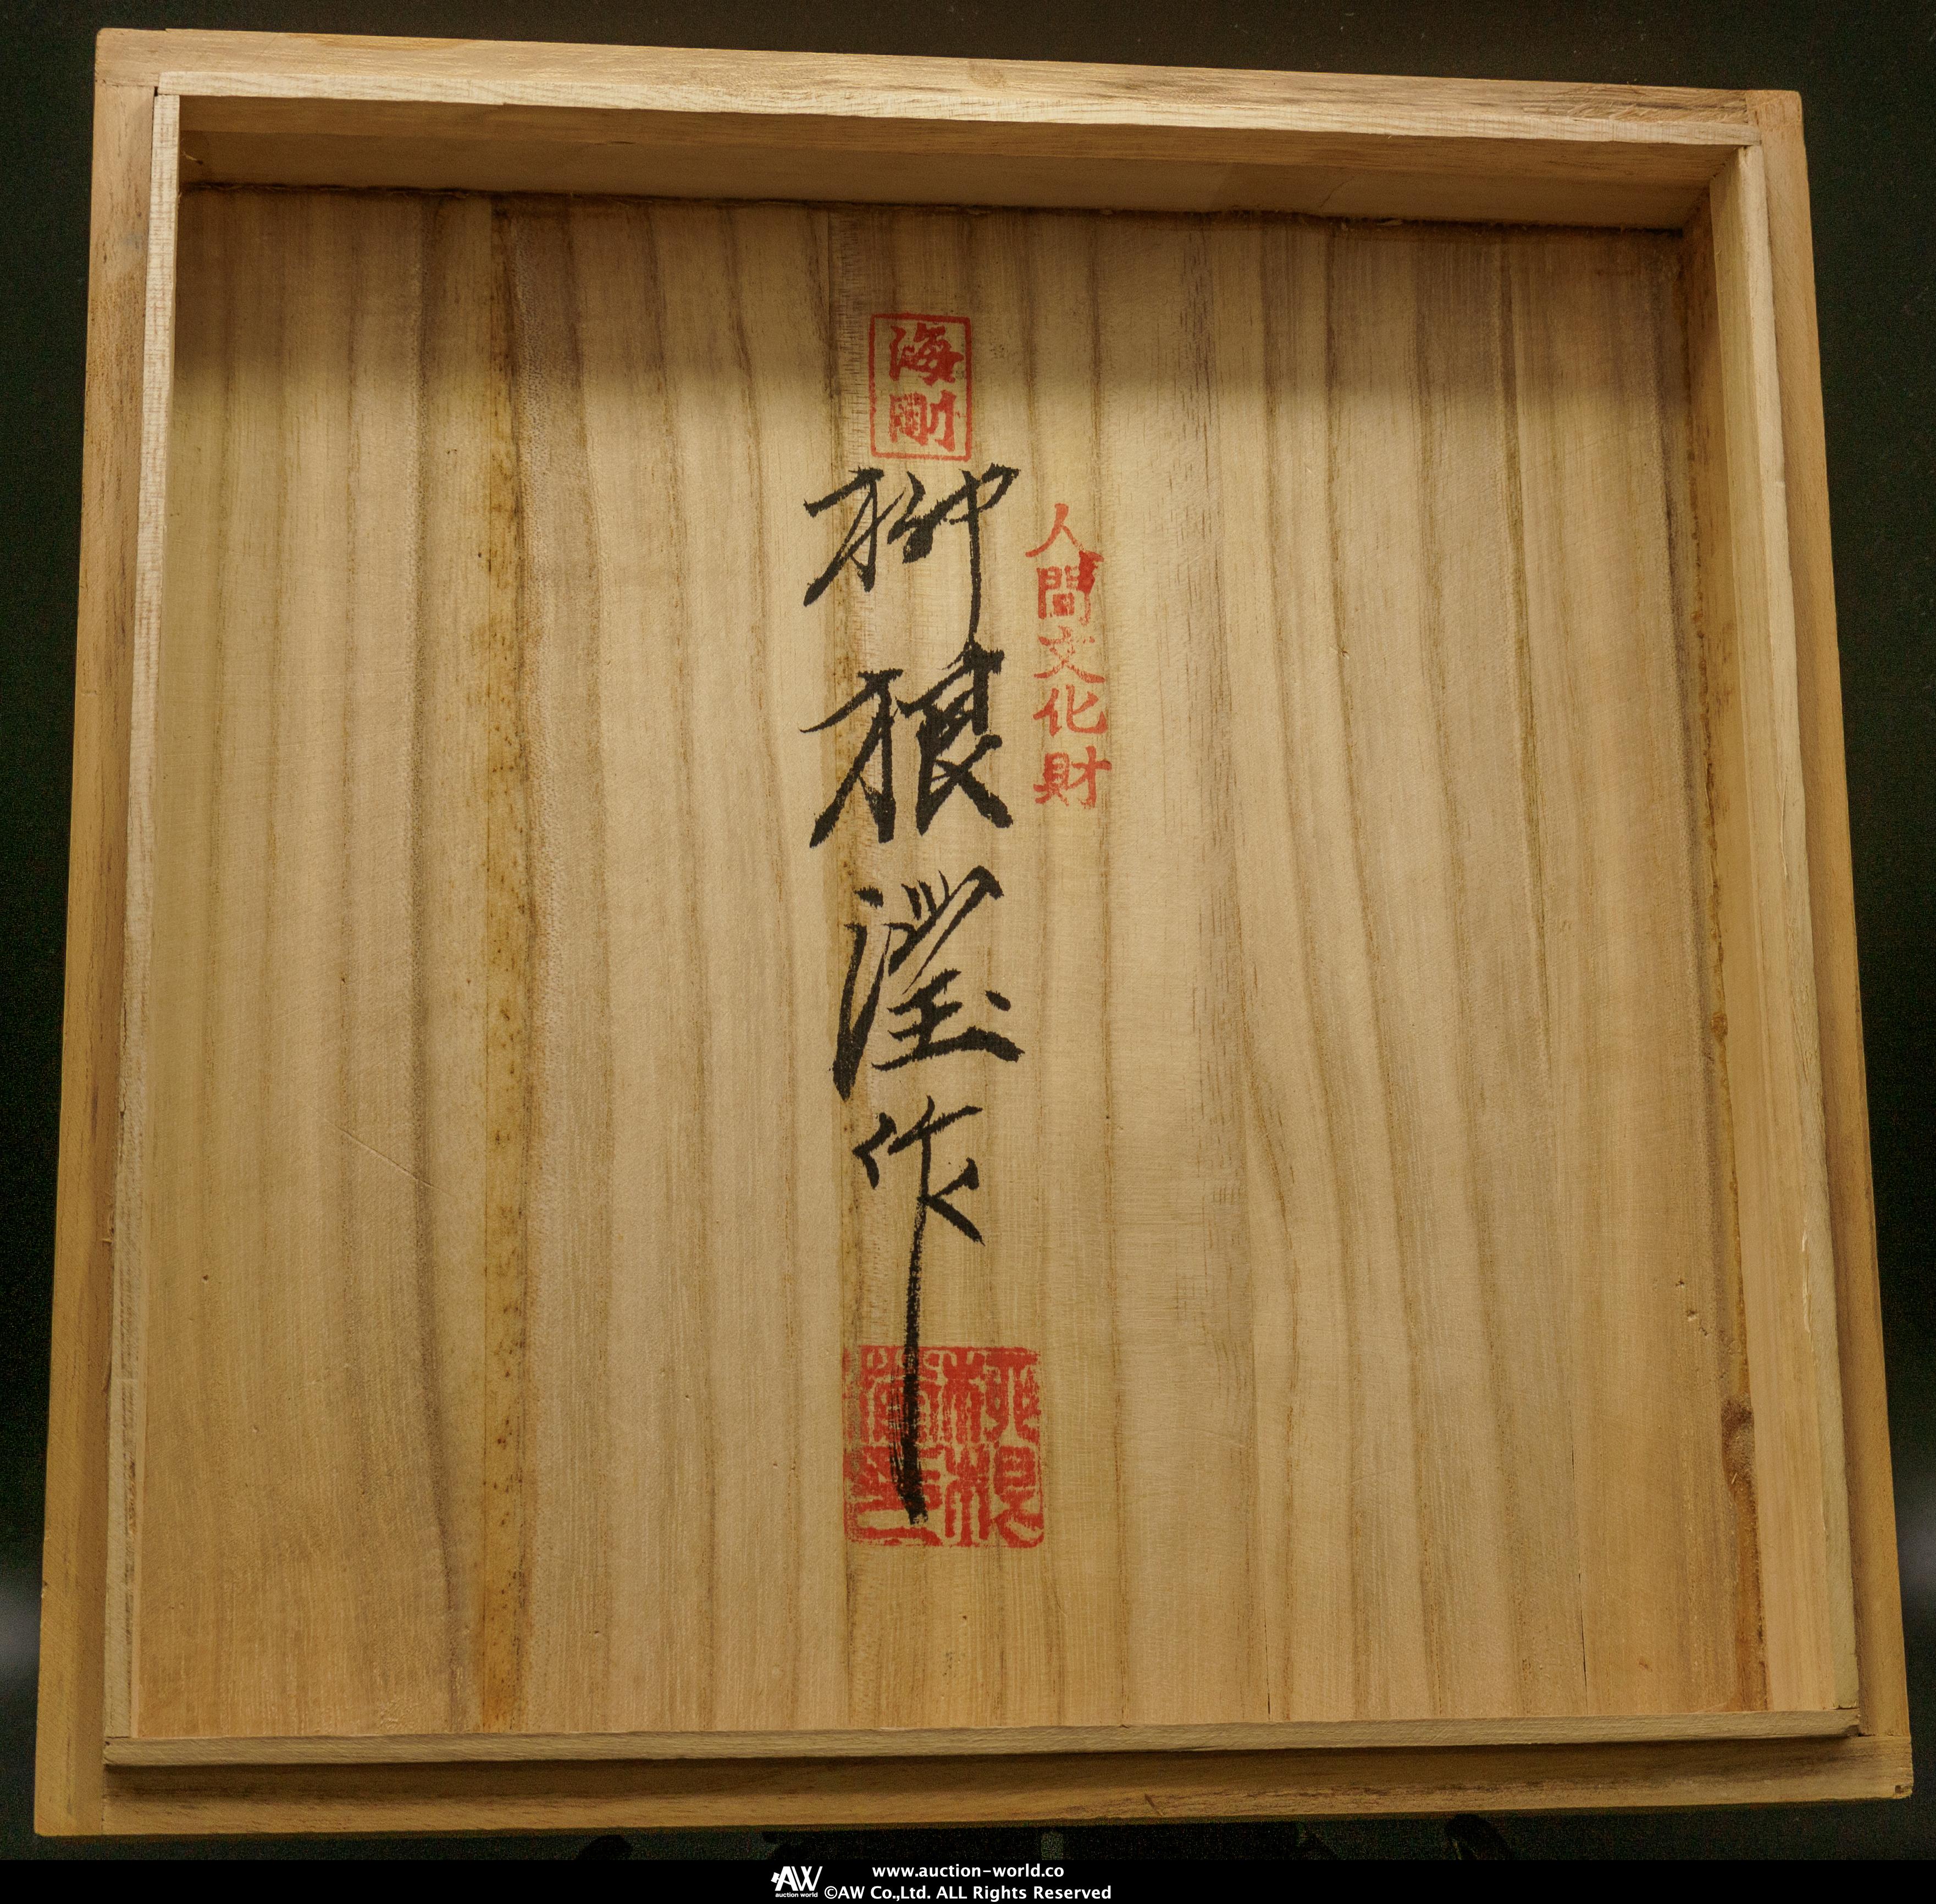 海剛
人間文化財
柳根瀅作
柳根
瀅印
AW
auction world
www.auction-world.co
©AW Co.,Ltd. ALL Rights Reserved